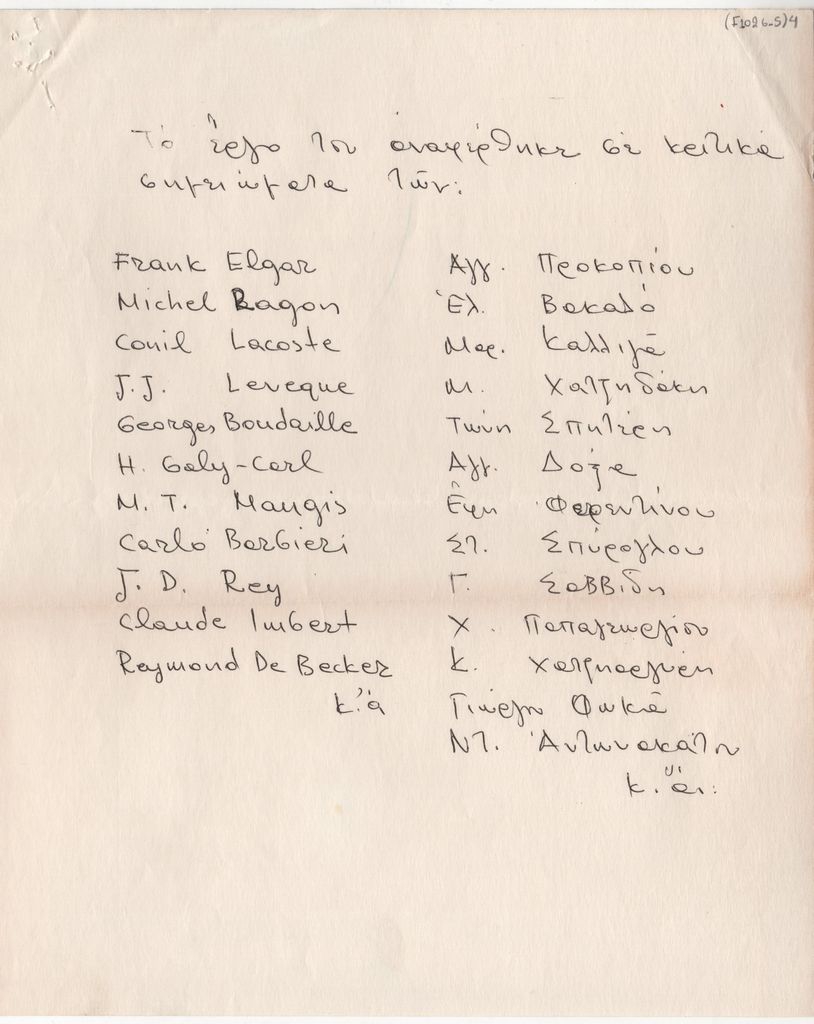 (F1026-S)4
Τό ἔργο του ἀναφέρθηκε σέ κριτικά
σημειώματα τῶν:
Frank Elgar
Michel Ragon
Conil Lacoste
J.J. Leveque
Georges Boudaille
H. Galy-Carl
M. T. Maugis
Carlo Barbieri
J. D. Rey
Claude Imbert
Raymond De Becker
κ.ἄ
Αγγ. Προκοπίου
Ἑλ. Βακαλό
Μαρ. Καλλιγᾶ
Μ. Χατζηδάκη
Τώνη Σπητέρη
Αγγ. Δόξα
Ἔφη Φερεντίνου
Στ. Σπύρογλου
Γ. Σαββίδη
Χ. Παπαγεωργίου
Κ. Χατζηαργύρη
Γιώργη Φωκᾶ
Ντ. Ἀντωνακάτου
κ. ἄ.: